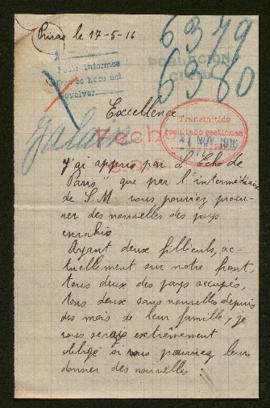 le 17-5-16
6379
6380
Excellence
Transmitido
NOV. 1916
J'ai appris par L'Echo de
Paris" que par l'intermédiaire
de S.M. vous pouviez procu-
rer des nouvelles des pays
envahis
Ayant deux filleuls, ac-
tuellement sur notre front,
tous deux des pays occupés,
tous deux sans nouvelle depuis
des mois de leur famille, je
vous serais extrêmement
obligé si vous pouviez leur
donner des nouvelles :